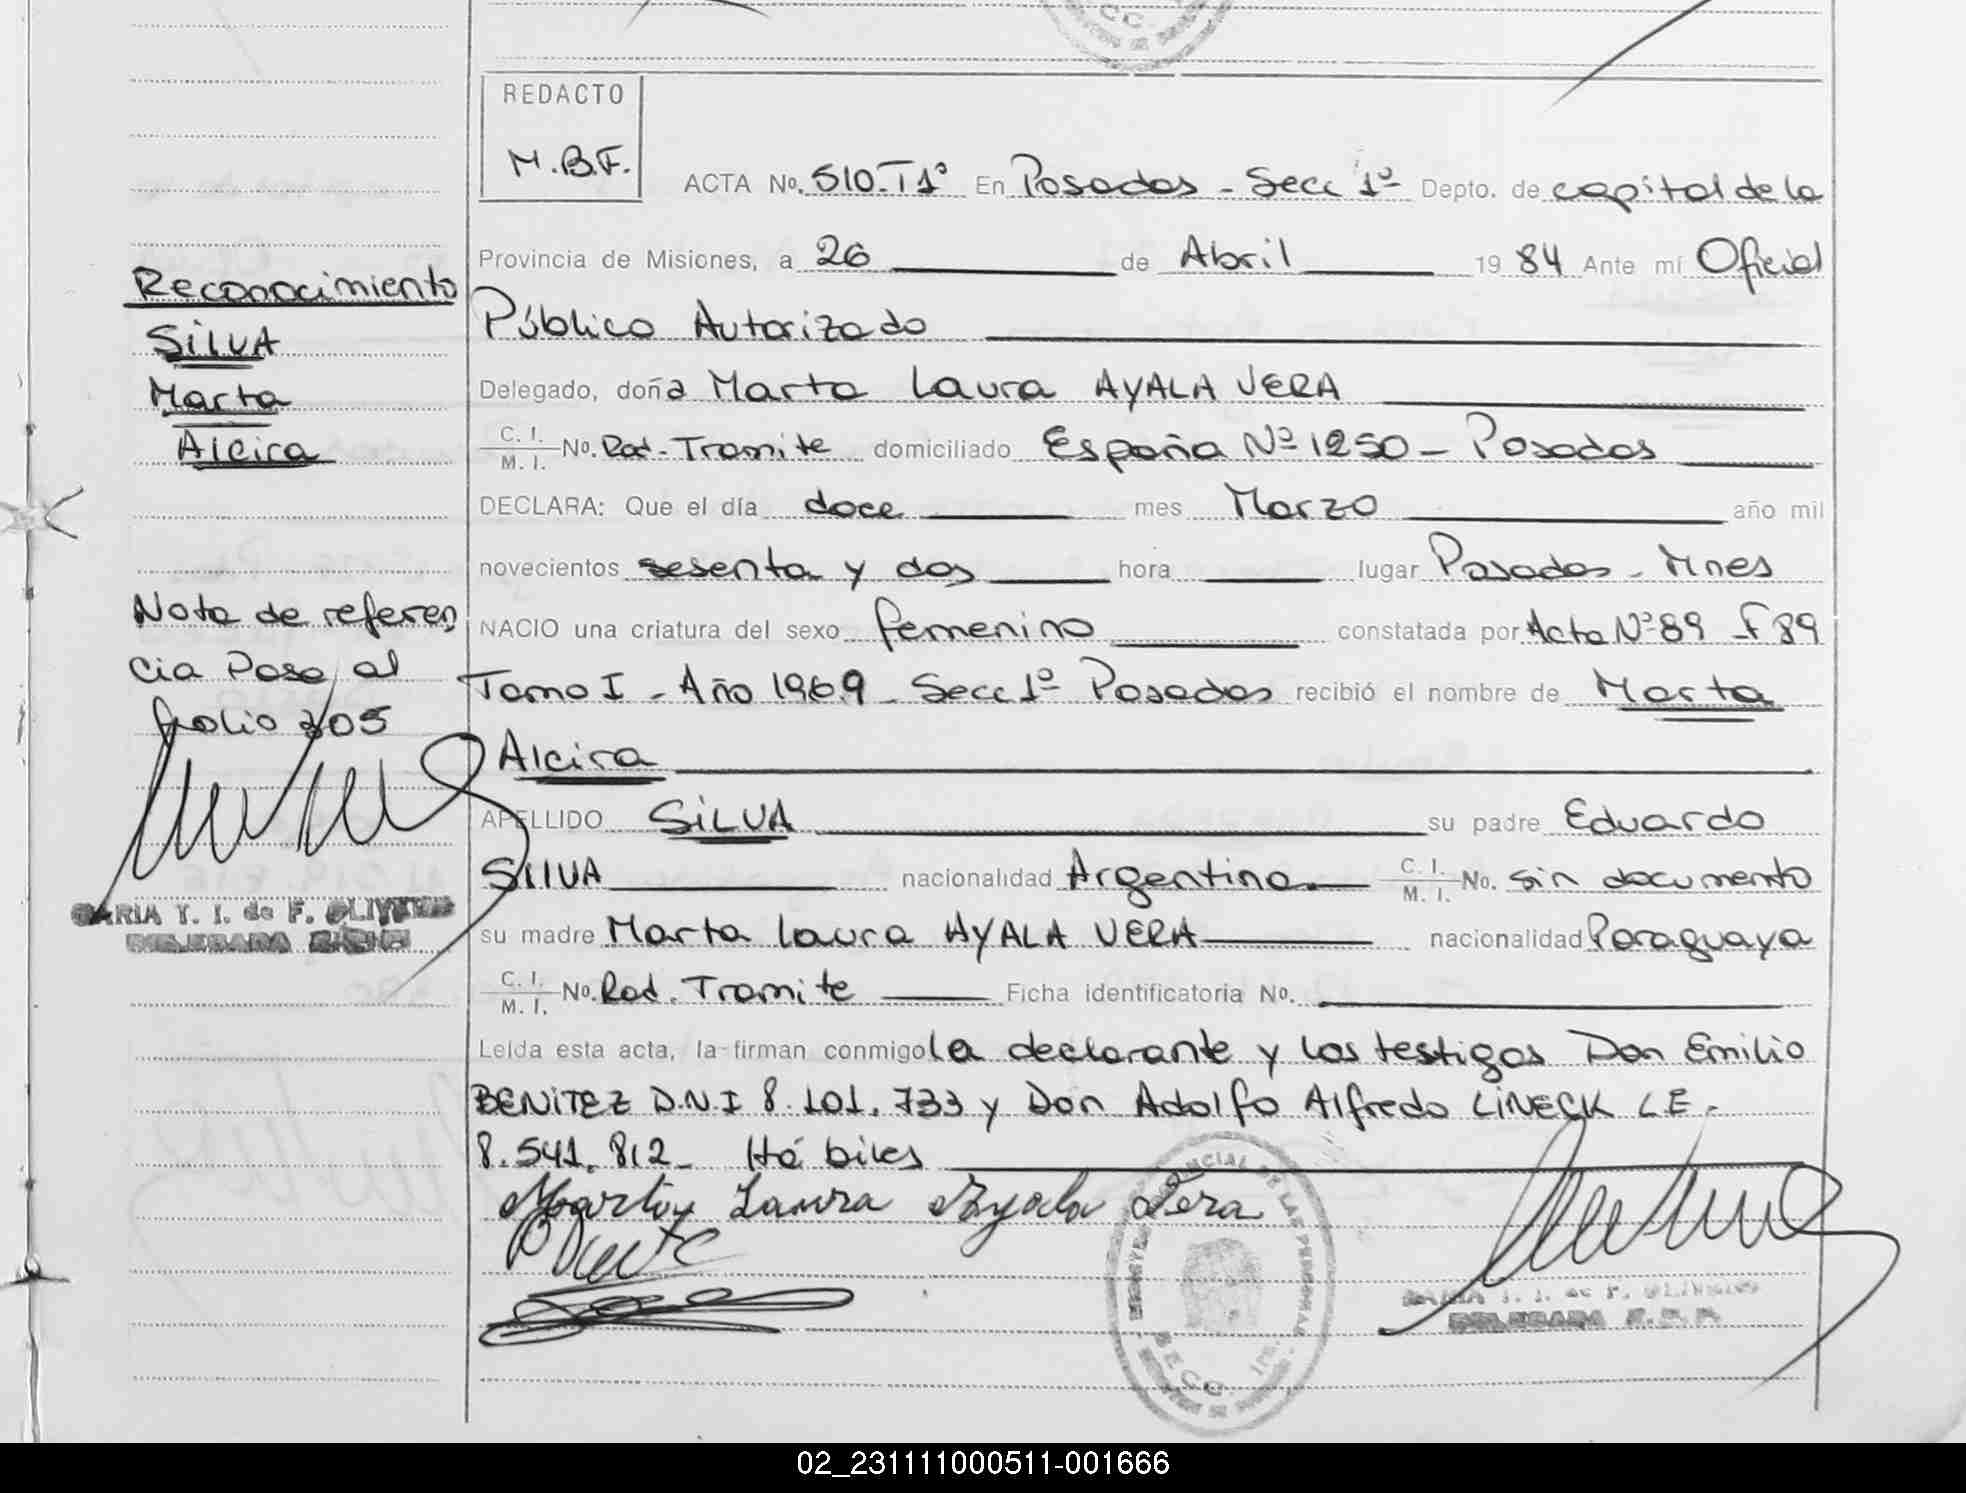 REDACTO
M.B.F.
ACTA No. 510-T1º En Posadas - Secc 1º Depto. de capital de la
Provincia de Misiones, a 26 de Abril 1984 Ante mí Oficial
Público Autorizado
Delegado, doña Marta Laura AYALA VERA
C. I. M. I. No. Rad. Tramite domiciliado España Nº 1250 - Posadas
DECLARA: Que el día doce mes Marzo año mil
novecientos sesenta y dos hora lugar Posadas - Mnes
NACIO una criatura del sexo femenino constatada por Acta Nº 89 F 89
Tomo I - Año 1969 - Secc 1º Posadas recibió el nombre de Marta
Alcira
APELLIDO SILVA su padre Eduardo
SILVA nacionalidad Argentina C. I. M. I. No. sin documento
su madre Marta Laura AYALA VERA nacionalidad Paraguaya
C. I. M. I. No. Rad. Tramite Ficha identificatoria No.
Leída esta acta, la firman conmigo la declarante y los testigos Don Emilio
BENITEZ D.N.I 8.101.733 y Don Adolfo Alfredo LINECK L.E.
8.541.812- Hábiles
Marta Laura Ayala Vera
Reconocimiento
SILVA
Marta
Alcira
Nota de referen
cia Pase al
folio 305
MARIA T. I. de F. OLIVEIRA
DELEGADA
MARIA T. I. de F.
DELEGADA
02_231111000511-001666